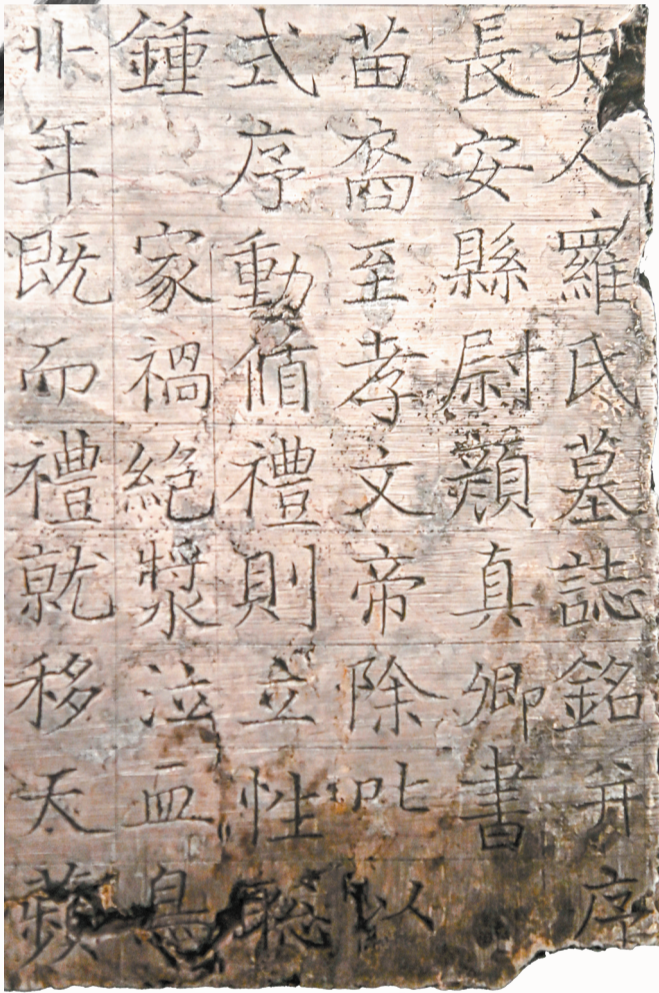 夫人羅氏墓誌銘并序
長安縣尉顏真卿書
苗裔至孝文帝除叱以
式序動偱禮則立性聡
鍾 家禍絕漿泣血鳥
卝年既而禮就移天蘋